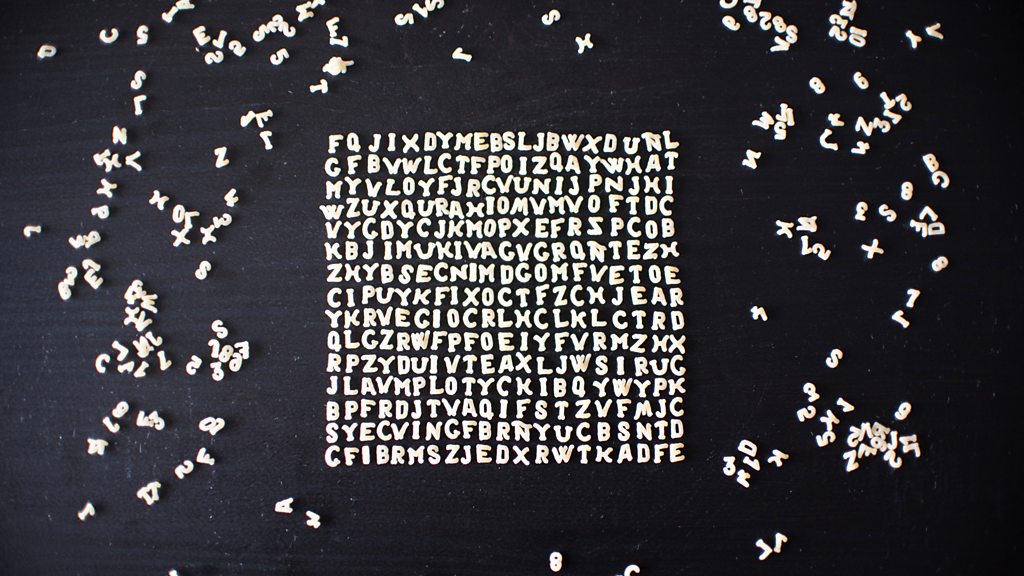 FQJIXDYMEBSLJBWXDUÑL
GFBVWLCTFPOIZQAYWHAT
MYVLOYFJRCVUNIJPNJHI
WZUXQURAHIOMVMVOFTDC
VYGDYCJKMOPXEFRSPCOB
KBJIMUKIVAGVGRQÑTEZH
ZHYBSECNIMDGOMFVETOE
CIPUYKFIXOCTFZCHJEAR
YKRVEGIOCRLHCLKLCTRD
QLGZRWFPFOEIYFVRMZHX
RPZYDUIVTEAXLJWSIRUG
JLAVMPLOTYCHIBQYWYPK
BPFRDJTVAQIFSTZVFMJC
SYECVINGFBRÑYUCBSNTD
GFIBRMSZJEDXRWTKADFE